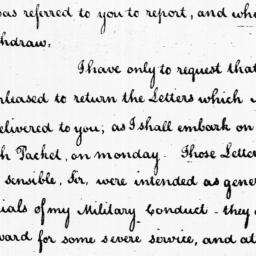 was referred to you to report, and whe
thdraw.
I have only to request that
pleased to return the Letters which
delivered to you; as I shall embark on
h Packet, on monday. Those Letter
sensible, Sir, were intended as gene
ials of my Military Conduct - they
ward for some severe service, and at